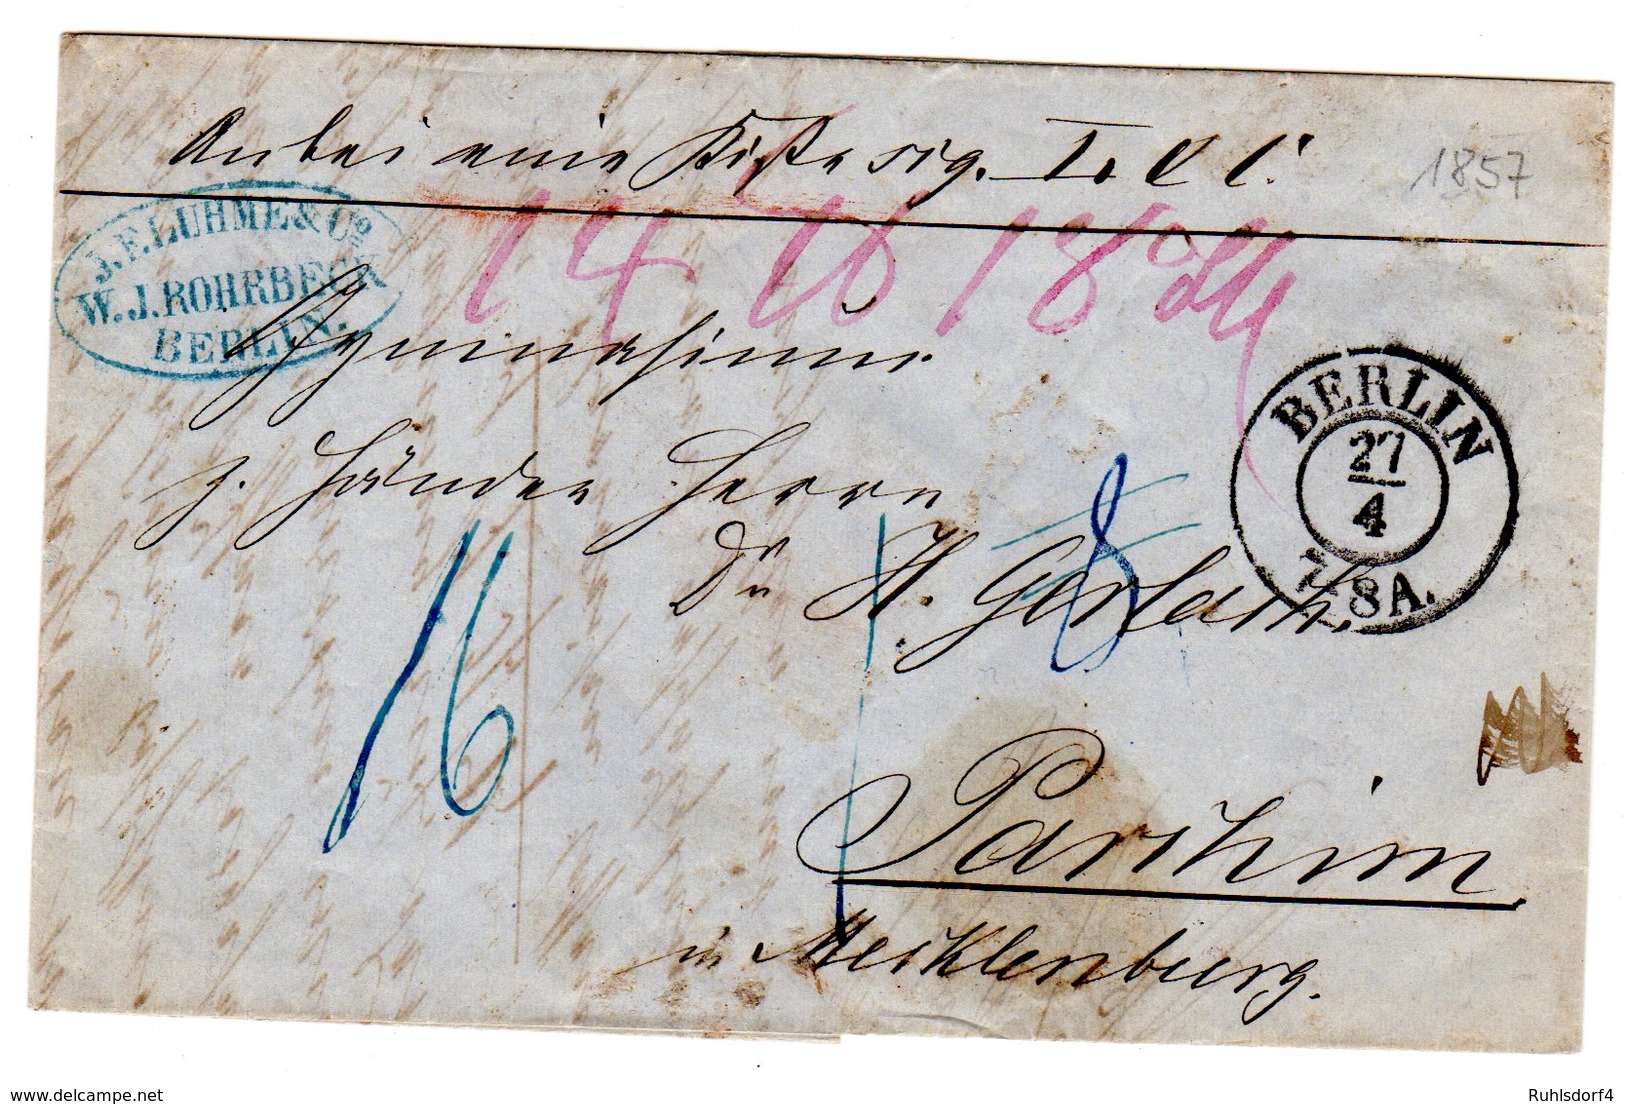 Anbei eine Kiste sig.
1857
J. F. LUHME & Co.
W. J. ROHRBECK
BERLIN.
14 18
Gymnasium
z. Händen Herrn
Dr H. Gerlach,
BERLIN
27
4
7-8 A.
16
8
Parchim
in Mecklenburg.
delcampe.net
Ruhlsdorf4